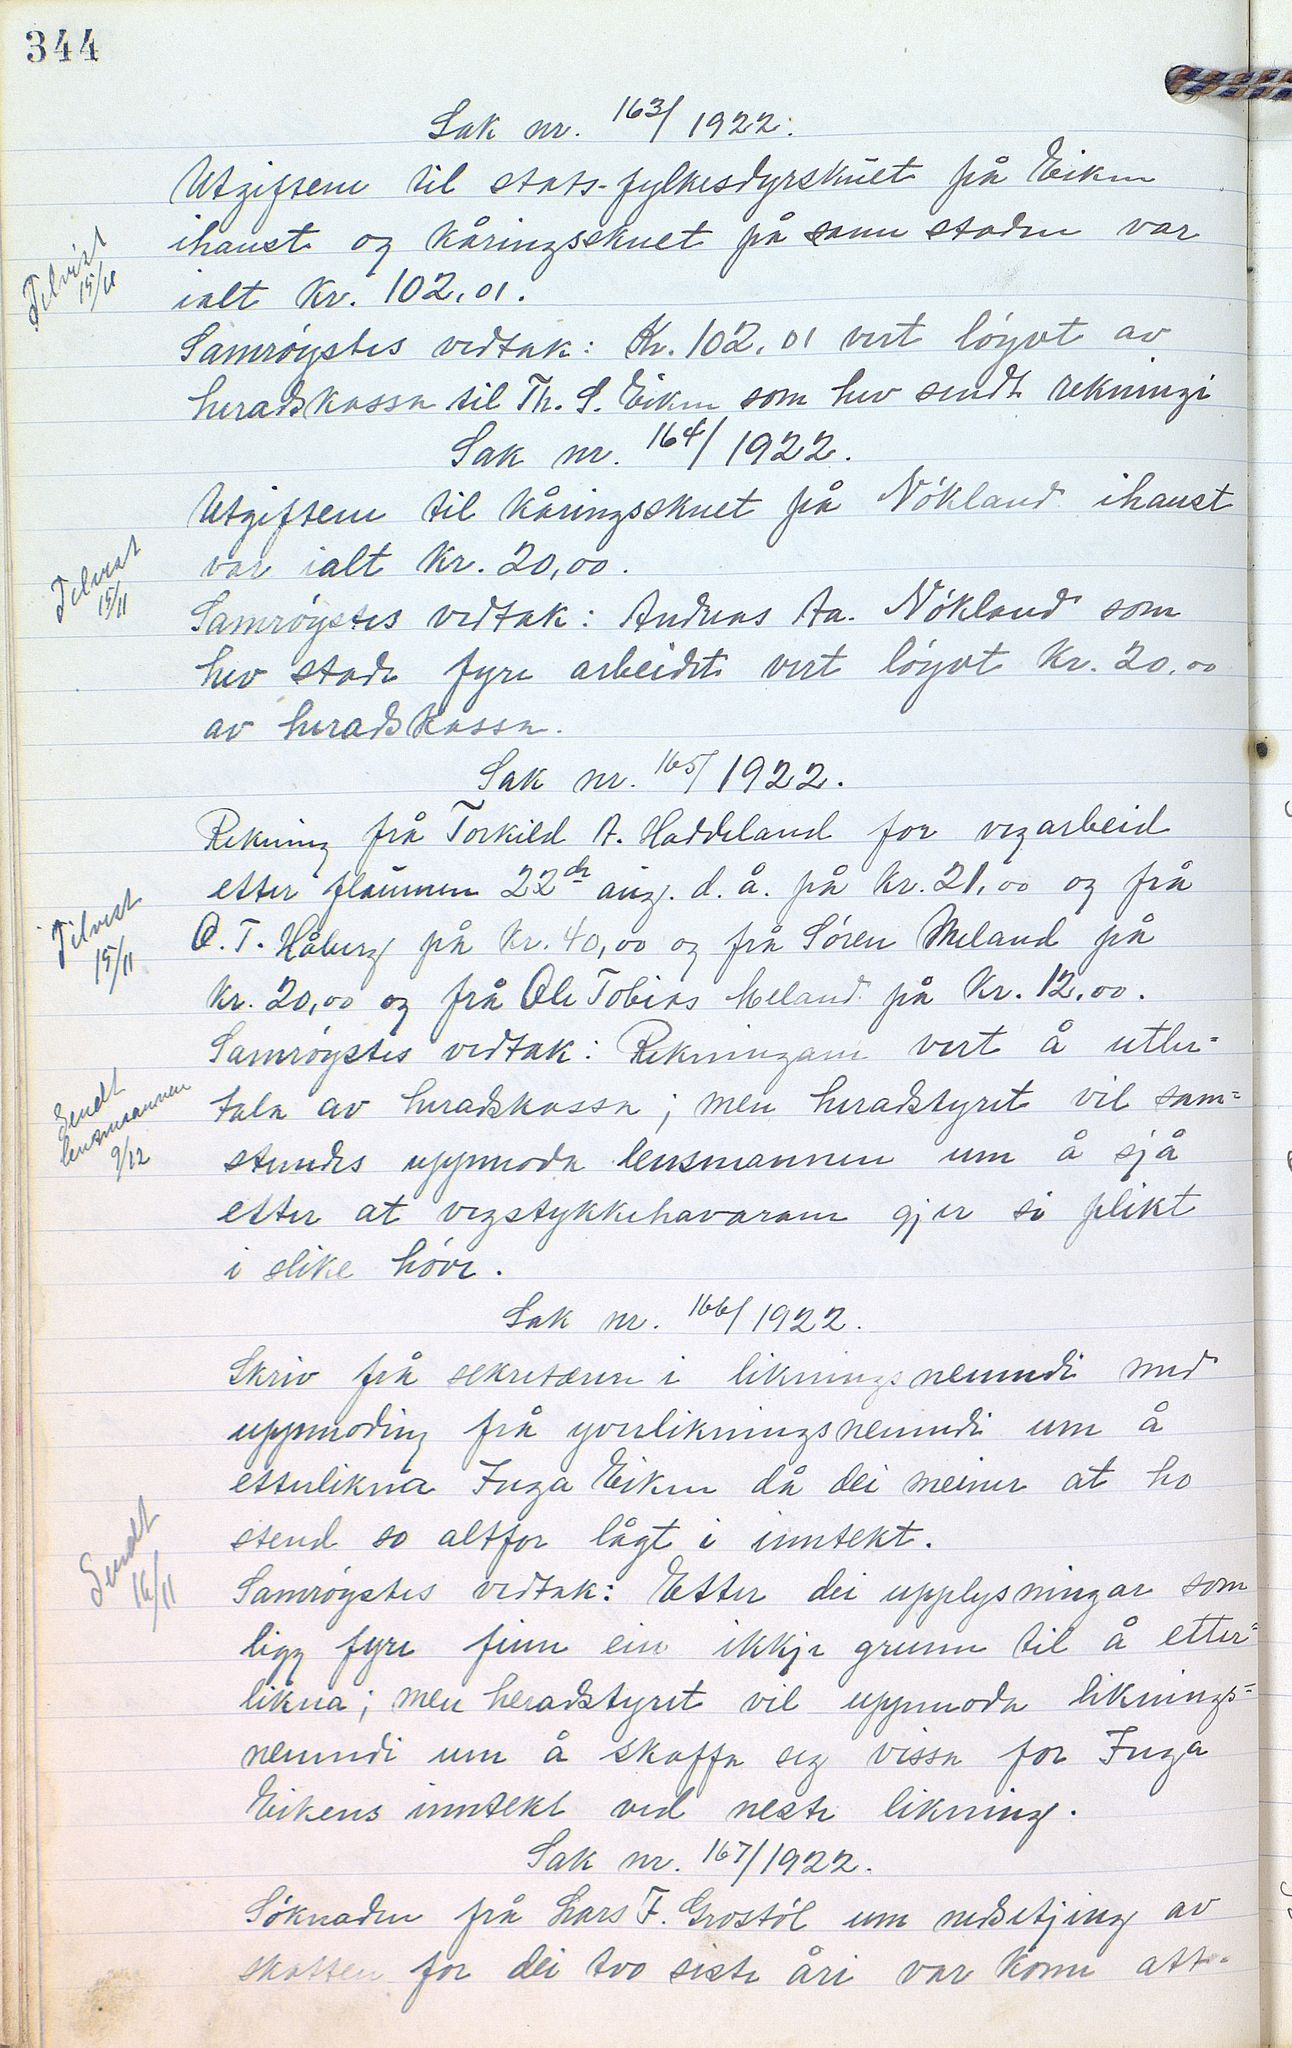 344
Sak nr. 163/1922.
Utgiftene til stats-fylkesdyrskuet på Eiken
ihaust og kåringsskuet på same staden var
ialt kr. 102,01.
Tilvist
15/11
Samrøystes vedtak: Kr. 102,01 vert løyvt av
heradskassa til Th. S. Eiken som hev sendt rekningi
Sak nr. 164/1922.
Utgiftene til kåringsskuet på Nökland ihaust
var ialt kr. 20,00.
Tilvist
15/11
Samrøystes vedtak: Andreas Aa. Nökland som
hev stade fyre arbeidet vert løyvt kr. 20,00
av heradskassa.
Sak nr. 165/1922.
Rekning frå Torkild A. Haddeland for vegarbeid
etter flaumen 22de aug. d. å. på kr. 21,00 og frå
O. T. Håberg på kr. 40,00 og frå Søren Meland på
kr. 20,00 og frå Ole Tobias Meland på kr. 12,00.
Tilvist
15/11
Samrøystes vedtak: Rekningane vert å utbe-
tala av heradskassa; men heradstyret vil sam-
stundes uppmoda lensmannen um å sjå
etter at vegstykkehavarane gjer si plikt
i slike høve.
Sendt
lensmannen
9/12
Sak nr. 166/1922.
Skriv frå sekretæren i likningsnemndi med
uppmoding frå yverlikningsnemndi um å
etterlikna Inga Eiken då dei meiner at ho
stend so altfor lågt i inntekt.
Sendt
16/11
Samrøystes vedtak: Etter dei upplysningar som
ligg fyre finn ein ikkje grunn til å etter-
likna; men heradstyret vil uppmoda liknings-
nemndi um å skaffa seg vissa for Inga
Eikens inntekt ved neste likning.
Sak nr. 167/1922.
Söknaden frå Lars T. Grostöl um nedsetjing av
skatten for dei tvo siste åri var kome att-